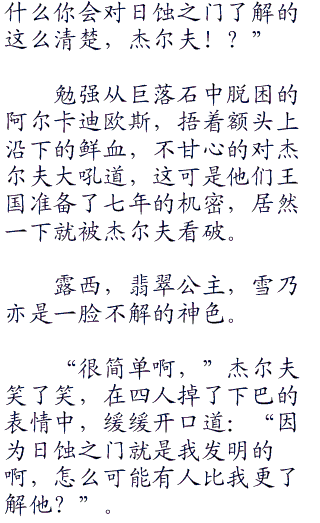 什么你会对日蚀之门了解的
这么清楚，杰尔夫！？”
勉强从巨落石中脱困的
阿尔卡迪欧斯，捂着额头上
沿下的鲜血，不甘心的对杰
尔夫大吼道，这可是他们王
国准备了七年的机密，居然
一下就被杰尔夫看破。
露西，翡翠公主，雪乃
亦是一脸不解的神色。
“很简单啊，”杰尔夫
笑了笑，在四人掉了下巴的
表情中，缓缓开口道：“因
为日蚀之门就是我发明的
啊，怎么可能有人比我更了
解他？”。